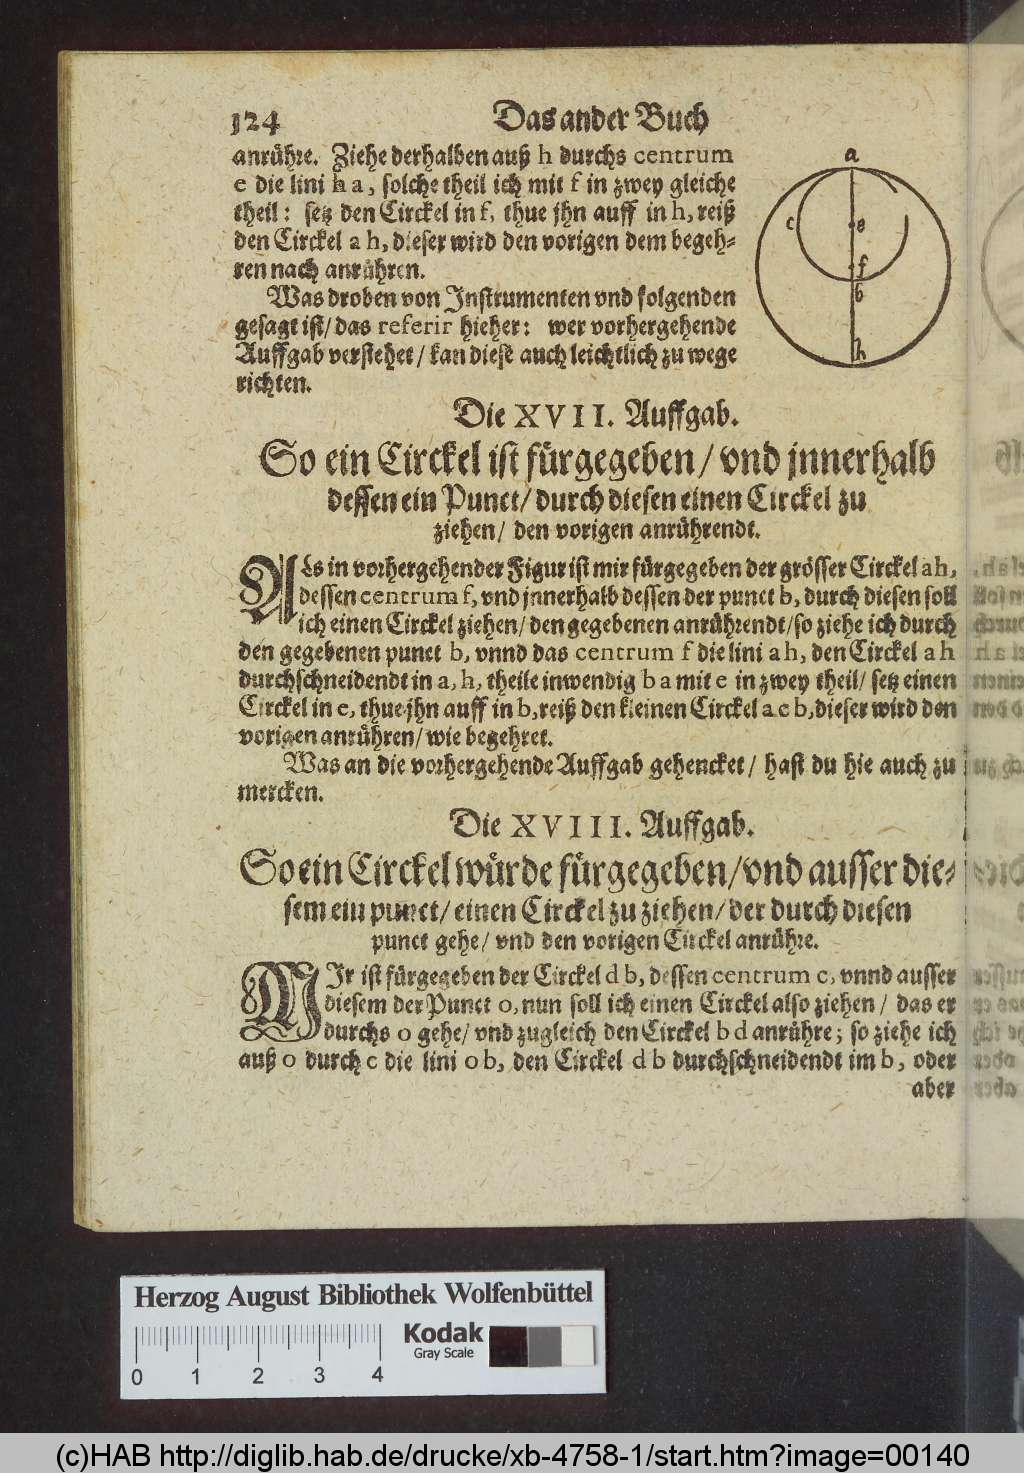 124 Das ander Buch
anrühre. Ziehe derhalben auß h durchs centrum
e die lini h a, solche theil ich mit f in zwey gleiche
theil: setz den Circkel in f, thue jhn auff in h, reiß
den Circkel a h, dieser wird den vorigen dem begeh-
ren nach anrühren.
Was droben von Instrumenten vnd folgenden
gesagt ist/ das referir hieher: wer vorhergehende
Auffgab verstehet/ kan diese auch leichtlich zu wege
richten.
a
c
e
f
b
h
Die XVII. Auffgab.
So ein Circkel ist fürgegeben/ vnd jnnerhalb
dessen ein Punct/ durch diesen einen Circkel zu
ziehen/ den vorigen anrührendt.
Als in vorhergehender Figur ist mir fürgegeben der grösser Circkel ah,
dessen centrum f, vnd jnnerhalb dessen der punct b, durch diesen soll
ich einen Circkel ziehen/ den gegebenen anrührendt/ so ziehe ich durch
den gegebenen punct b, vnnd das centrum f die lini a h, den Circkel a h
durchschneidendt in a, h, theile inwendig b a mit e in zwey theil/ setz einen
Circkel in e, thue jhn auff in b, reiß den kleinen Circkel a c b, dieser wird den
vorigen anrühren/ wie begehret.
Was an die vorhergehende Auffgab gehencket/ hast du hie auch zu
mercken.
Die XVIII. Auffgab.
So ein Circkel würde fürgegeben/ vnd ausser die-
sem ein punct/ einen Circkel zu ziehen/ der durch diesen
punct gehe/ vnd den vorigen Circkel anrühre.
MIr ist fürgegeben der Circkel d b, dessen centrum c, vnnd ausser
diesem der Punct o, nun soll ich einen Circkel also ziehen/ das er
durchs o gehe/ vnd zugleich den Circkel b d anrühre; so ziehe ich
auß o durch c die lini o b, den Circkel d b durchschneidendt im b, oder
aber
Herzog August Bibliothek Wolfenbüttel
Kodak
Gray Scale
0 1 2 3 4
(c)HAB http://diglib.hab.de/drucke/xb-4758-1/start.htm?image=00140